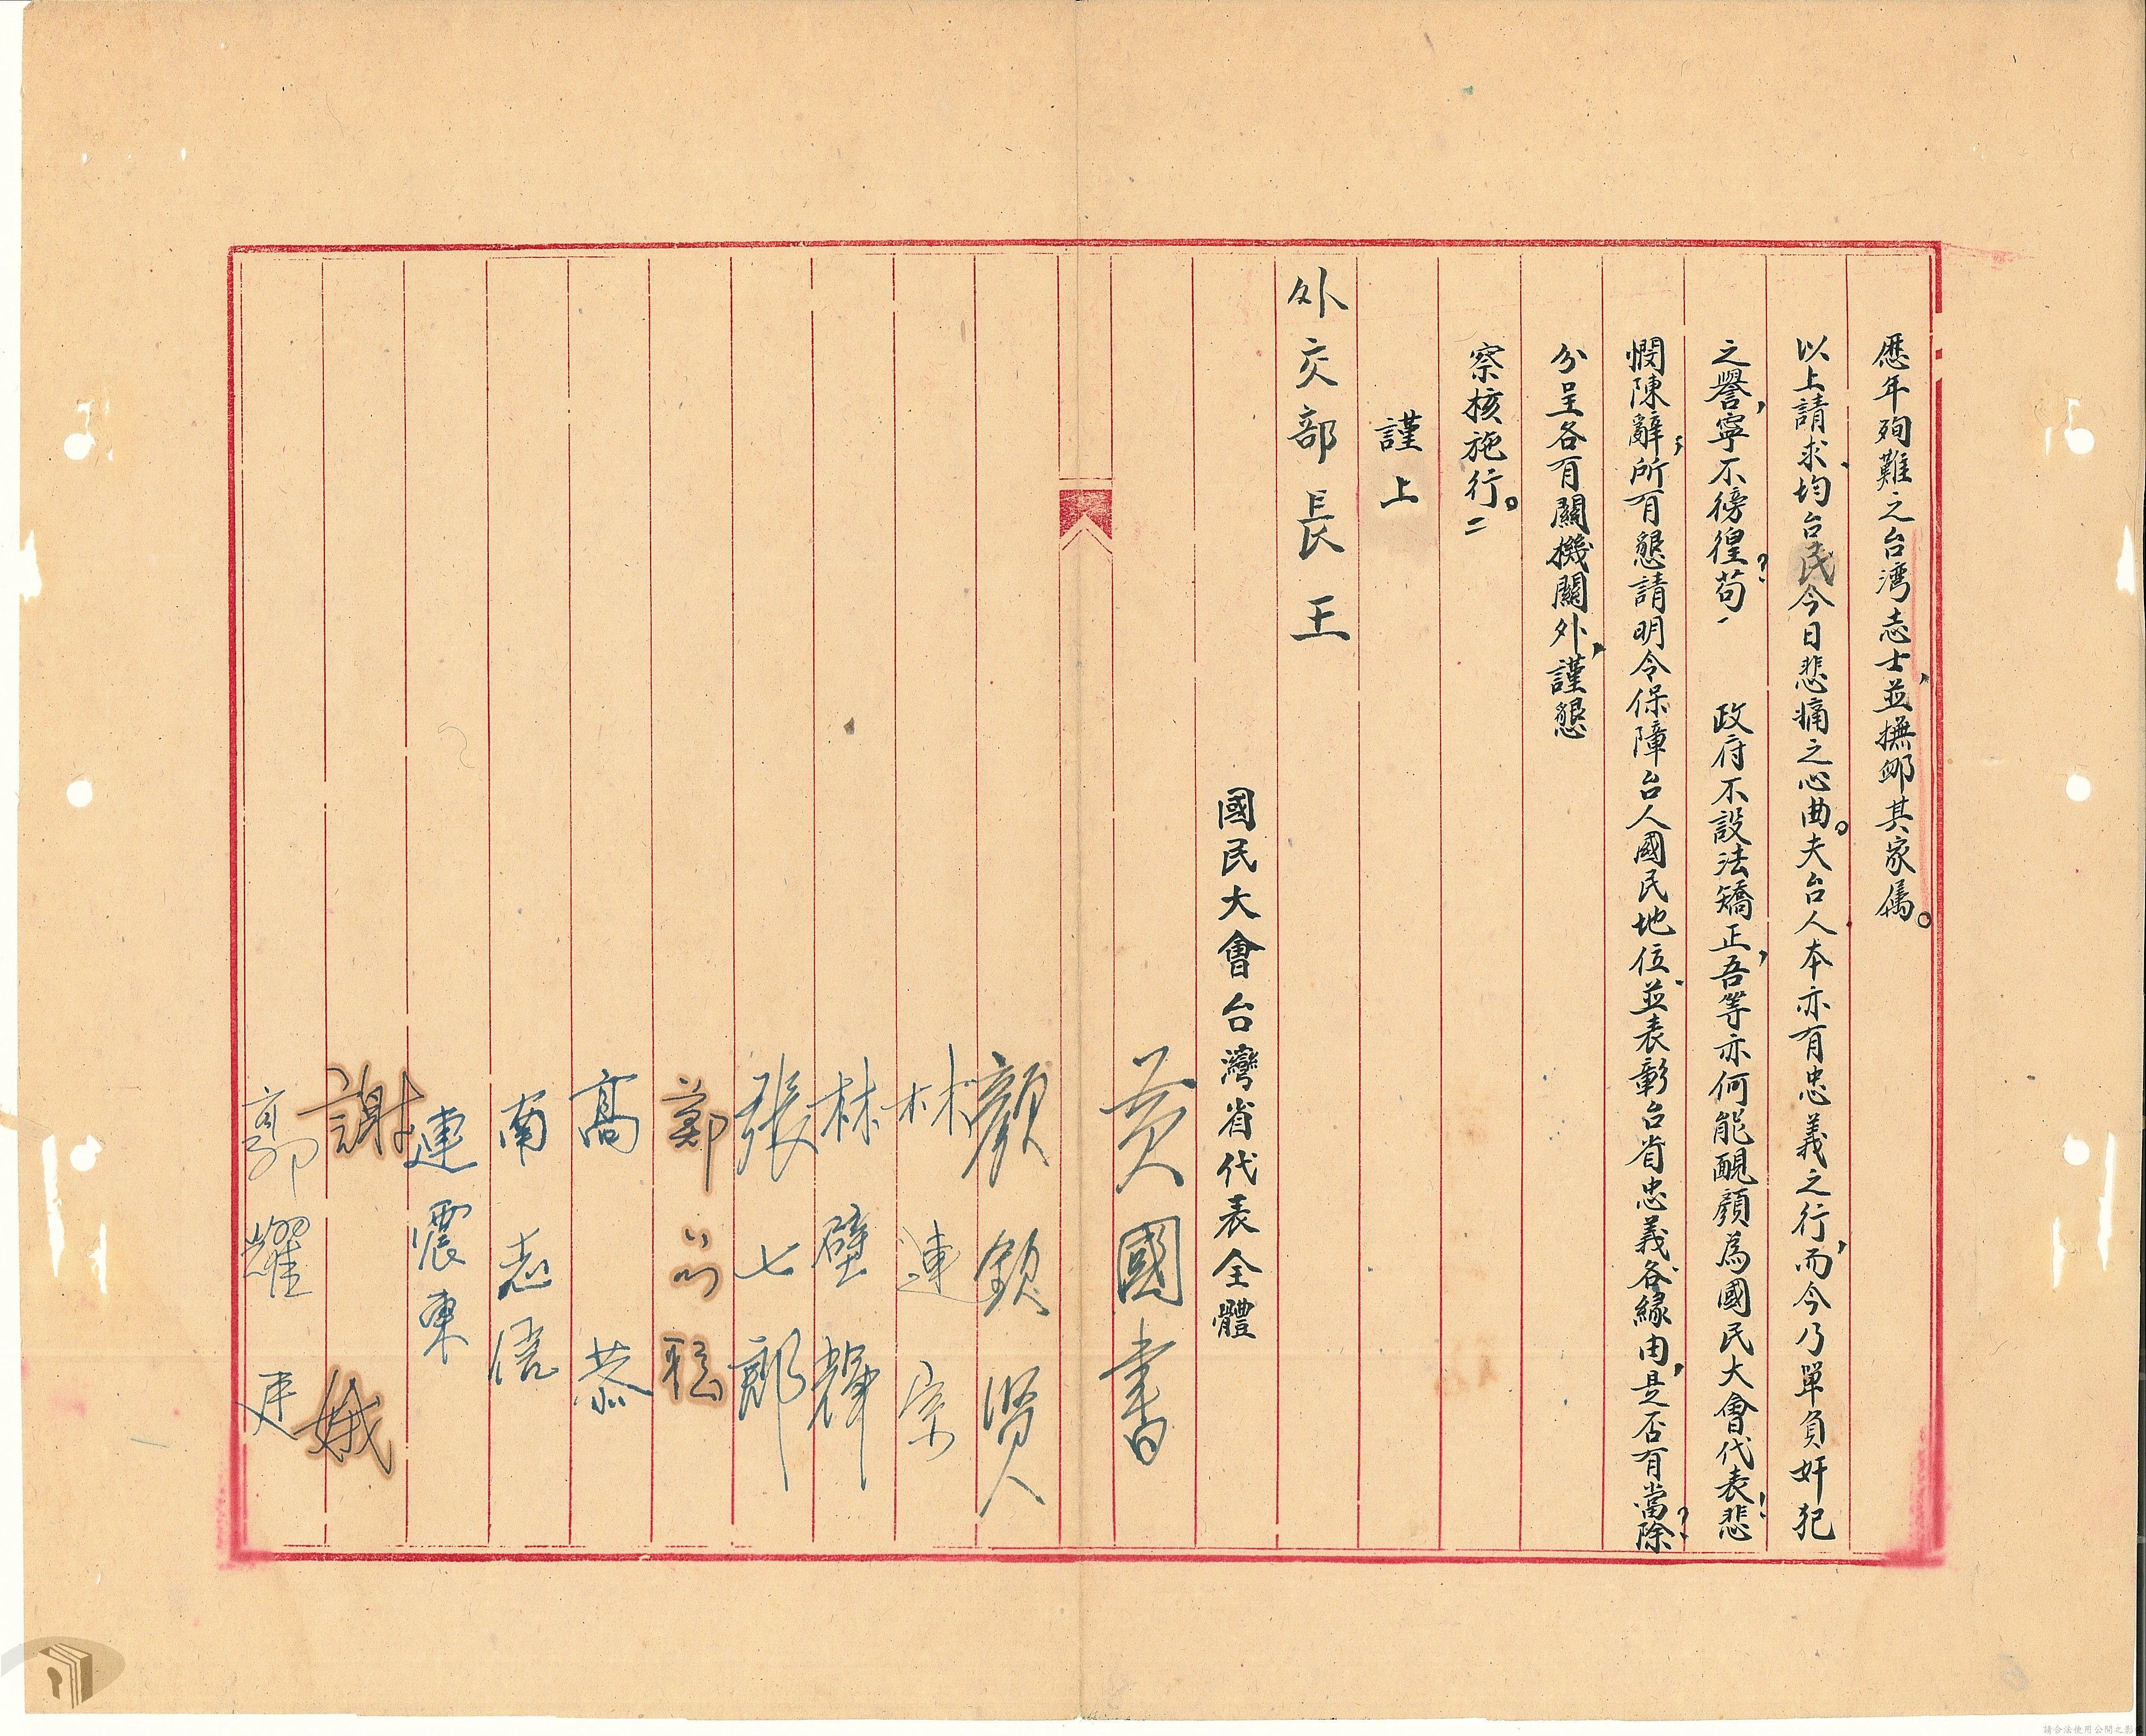 歷年殉難之台湾志士，並撫卹其家属。
以上請求、均台民今日悲痛之心曲。夫台人本亦有忠義之行，而今乃單負奸犯
之譽，寧不徬徨？苟、　政府不設法矯正，吾等亦何能靦顏為國民大會代表！悲
憫陳辭；所有懇請明令保障台人國民地位、並表彰台省忠義各緣由，是否有當？除
分呈各有關機關外，謹懇
察核施行。二
謹上
外交部長王
國民大會台灣省代表全體
黃國書
顏欽賢
林連宗
林璧輝
張七郎
鄭
高恭
南志信
連震東
謝娥
郭耀廷
請合法使用公開之影